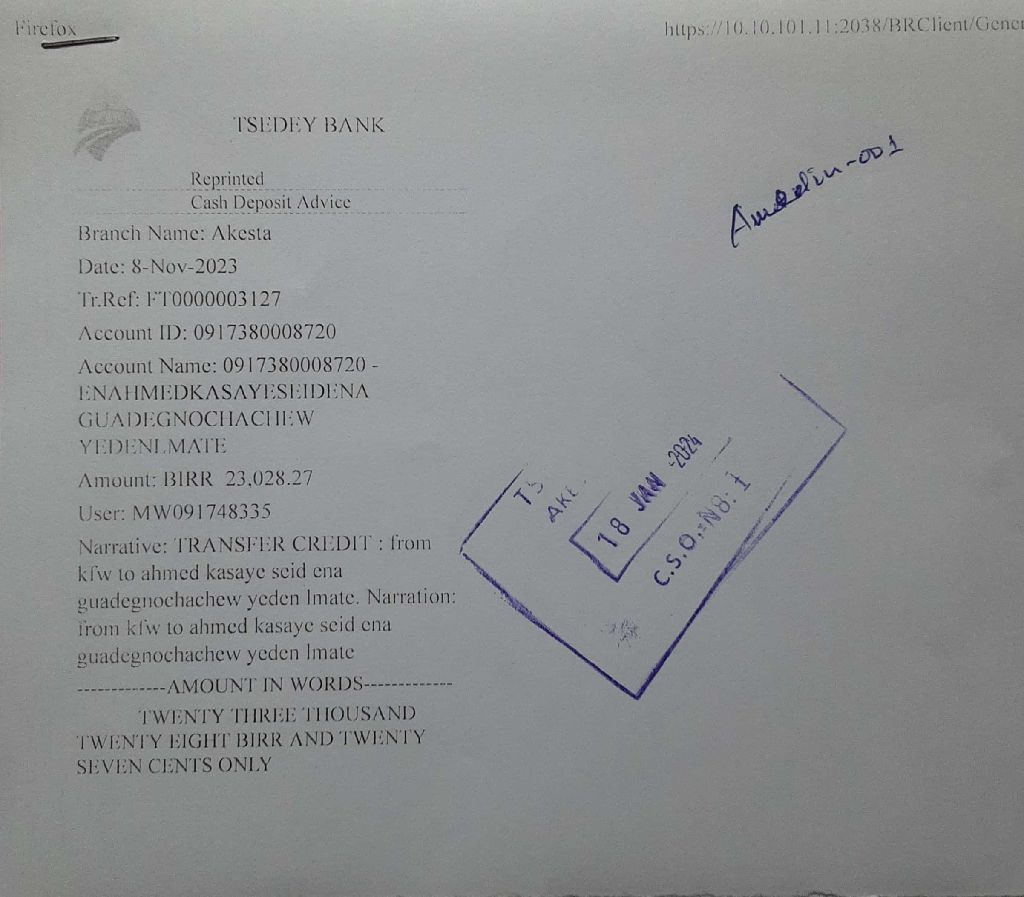 Firefox
https://10.10.101.11:2038/BRClient/Gener
TSEDEY BANK
Reprinted
Cash Deposit Advice
Branch Name: Akesta
Date: 8-Nov-2023
Tr.Ref: FT0000003127
Account ID: 0917380008720
Account Name: 0917380008720 -
ENAHMEDKASAYESEIDENA
GUADEGNOCHACHEW
YEDENLMATE
Amount: BIRR 23,028.27
User: MW091748335
Narrative: TRANSFER CREDIT : from
kfw to ahmed kasaye seid ena
guadegnochachew yeden lmate. Narration:
from kfw to ahmed kasaye seid ena
guadegnochachew yeden lmate
-------------AMOUNT IN WORDS-------------
TWENTY THREE THOUSAND
TWENTY EIGHT BIRR AND TWENTY
SEVEN CENTS ONLY
TS
AKE
18 JAN -2024
C.S.O.